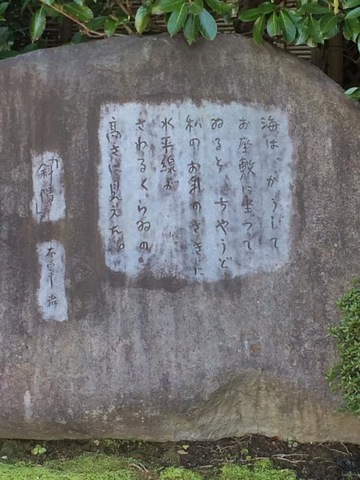 海は かうして
お座敷に坐つて
ゐると、ちやうど
私のお乳のさきに
水平線が
さわるくらゐの
高さに見えた。
「斜陽」
太宰治